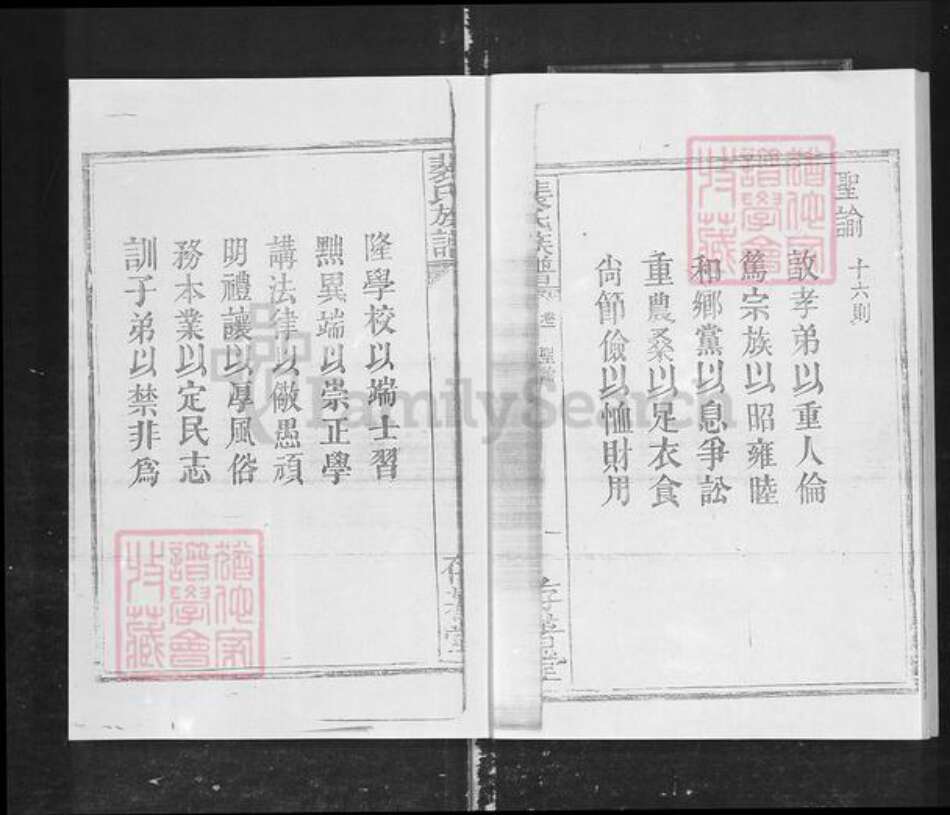 聖諭
十六則
敦孝弟以重人倫
篤宗族以昭雍睦
和鄉黨以息爭訟
重農桑以足衣食
尙節儉以恤財用
氏族譜
卷
聖諭
一
裴氏族譜
隆學校以端士習
黜異端以崇正學
講法律以儆愚頑
明禮讓以厚風俗
務本業以定民志
訓子弟以禁非爲
猶他家
譜學會
收藏
猶他家
譜學會
收藏
FamilySearch